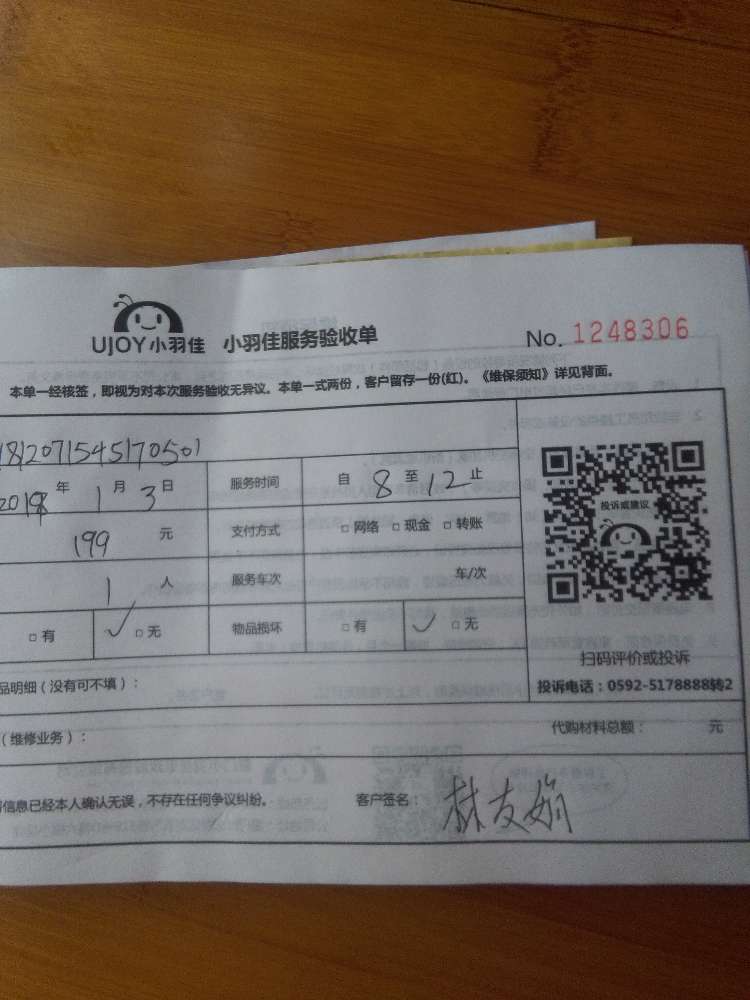 UJOY小羽佳 小羽佳服务验收单 No. 1248306
本单一经核签，即视为对本次服务验收无异议。本单一式两份，客户留存一份(红)。《维保须知》详见背面。
1812071545170501
2019 年 1 月 3 日 服务时间 自 8 至 12 止
199 元 支付方式 □ 网络 □ 现金 □ 转账
1 人 服务车次 车/次
□ 有 ✓ □ 无 物品损坏 □ 有 ✓ □ 无
投诉或建议
扫码评价或投诉
投诉电话：0592-5178888转2
品明细（没有可不填）：
（维修业务）： 代购材料总额： 元
信息已经本人确认无误，不存在任何争议纠纷。 客户签名： 林友娟